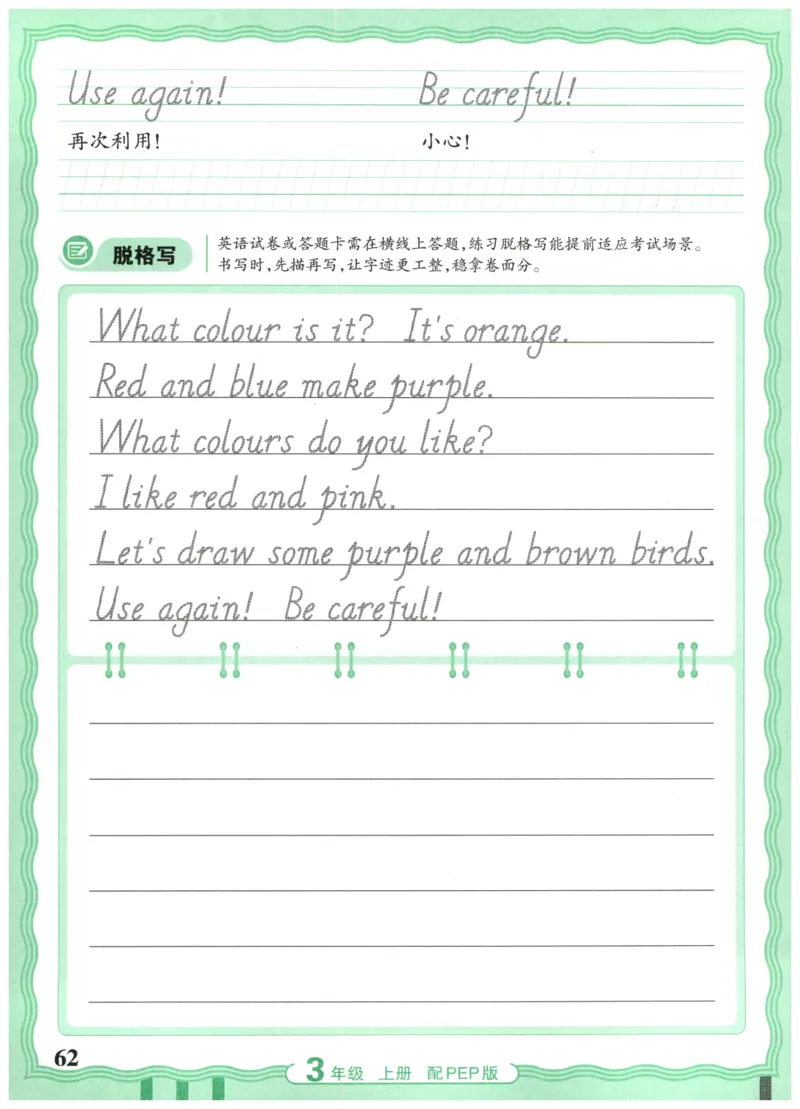 Use again! Be careful!
再次利用! 小心!
脱格写
英语试卷或答题卡需在横线上答题,练习脱格写能提前适应考试场景。
书写时,先描再写,让字迹更工整,稳拿卷面分。
What colour is it? It's orange.
Red and blue make purple.
What colours do you like?
I like red and pink.
Let's draw some purple and brown birds.
Use again! Be careful!
62
3年级 上册 配PEP版